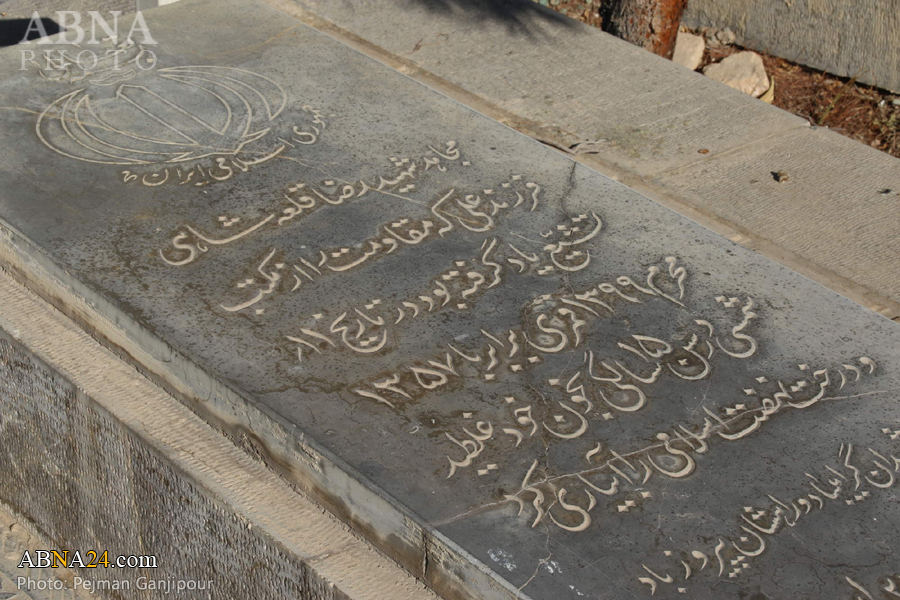 ABNA
PHOTO
جمهوری اسلامی ایران
مجاهد شهید رضا قلعه شاهی
فرزند علی که مقاومت را از مکتب
تشیع یاد گرفته بود در تاریخ ۱۱
محرم ۱۳۹۹ قمری برابر با ۱۳۵۷
شمسی در سن ۱۵ سالگی بخون خود غلطید
و درخت نهضت اسلامی را آبیاری کرد
گرامیباد و راهشان پیروز باد
ABNA24.com
Photo: Pejman Ganjipour